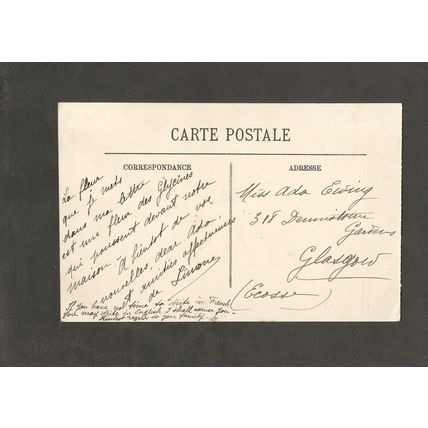 CARTE POSTALE
CORRESPONDANCE
La fleur
que je mets
dans ma lettre
est une fleur des Glycines
qui poussent devant notre
maison. A bientot de vos
nouvelles, dear Ada,
et amitiés affectueuses
de Simone
If you have not time to write in French
you may write in English. I shall answer you.
Kindest regards to your family.
ADRESSE
Miss Ada Ewing
318 Dennistoun
Gardens
Glasgow
(Ecosse)